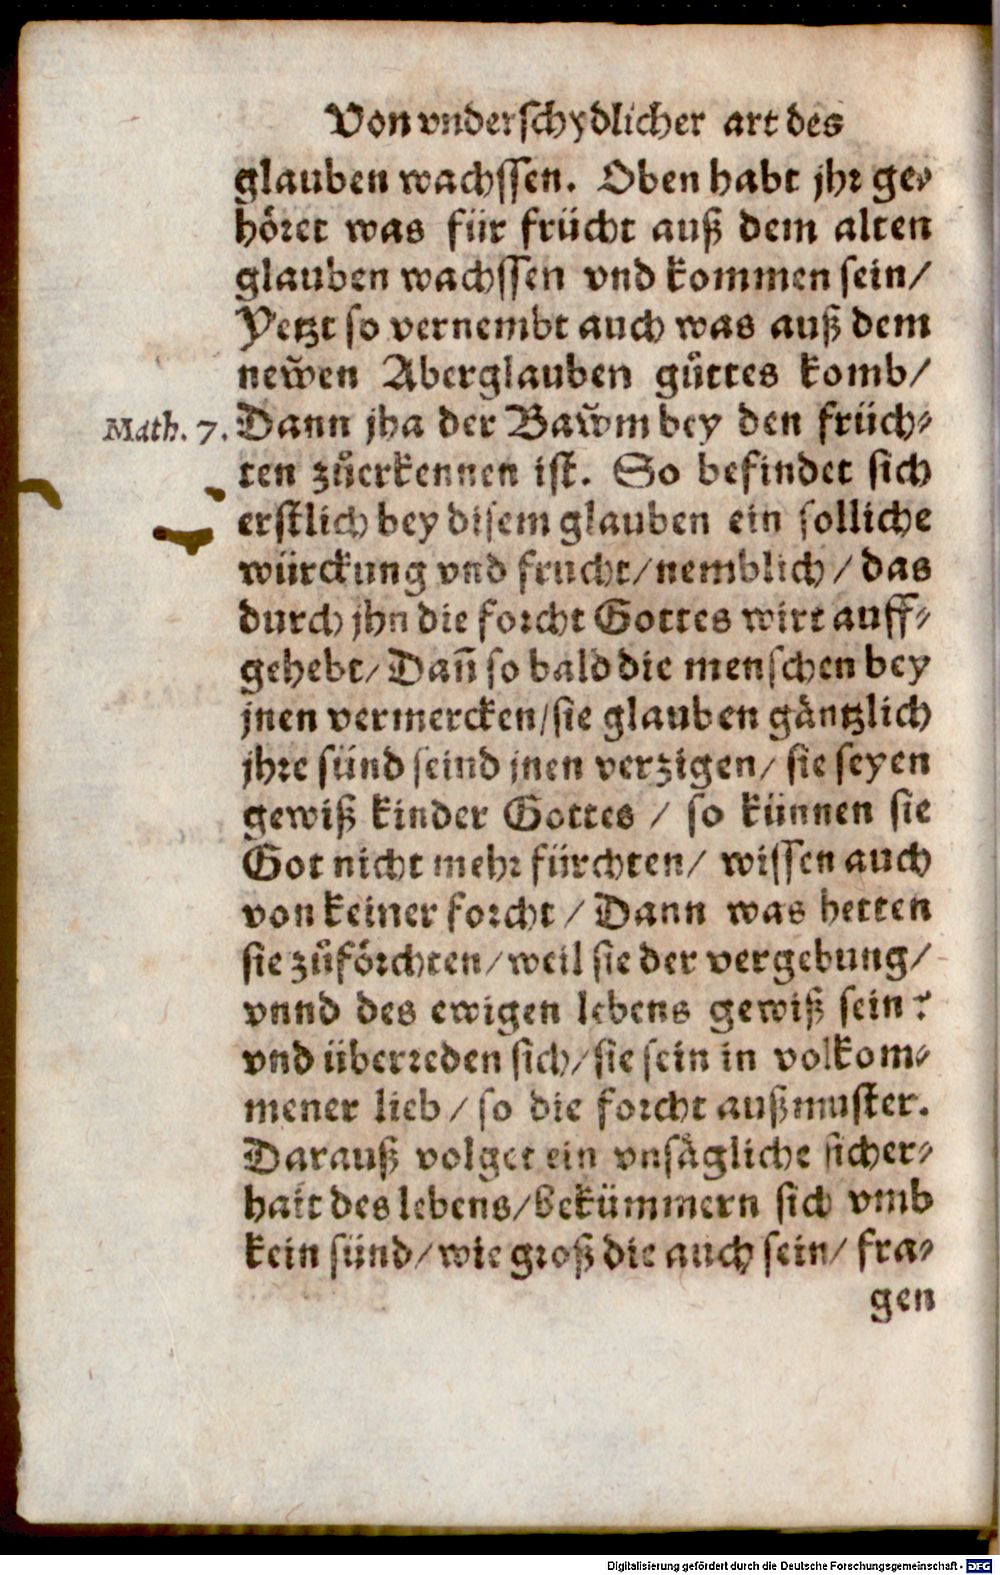 Von vnderschydlicher art des
glauben wachssen. Oben habt jhr ge⸗
höret was für frücht auß dem alten
glauben wachssen vnd kommen sein/
Yetzt so vernembt auch was auß dem
newen Aberglauben gůttes komb/
Math. 7. Dann jha der Bawm bey den früch⸗
ten zůerkennen ist. So befindet sich
erstlich bey disem glauben ein solliche
würckung vnd frucht/ nemblich/ das
durch jhn die forcht Gottes wirt auff⸗
gehebt/ Dañ so bald die menschen bey
jnen vermercken/ sie glauben gäntzlich
jhre sünd seind jnen verzigen/ sie seyen
gewiß kinder Gottes / so künnen sie
Got nicht mehr fürchten/ wissen auch
von keiner forcht / Dann was hetten
sie zůförchten/ weil sie der vergebung/
vnnd des ewigen lebens gewiß sein?
vnd überreden sich/ sie sein in volkom⸗
mener lieb / so die forcht außmuster.
Darauß volget ein vnsägliche sicher⸗
hait des lebens/ bekümmern sich vmb
kein sünd/ wie groß die auch sein/ fra⸗
gen
Digitalisierung gefördert durch die Deutsche Forschungsgemeinschaft - DFG